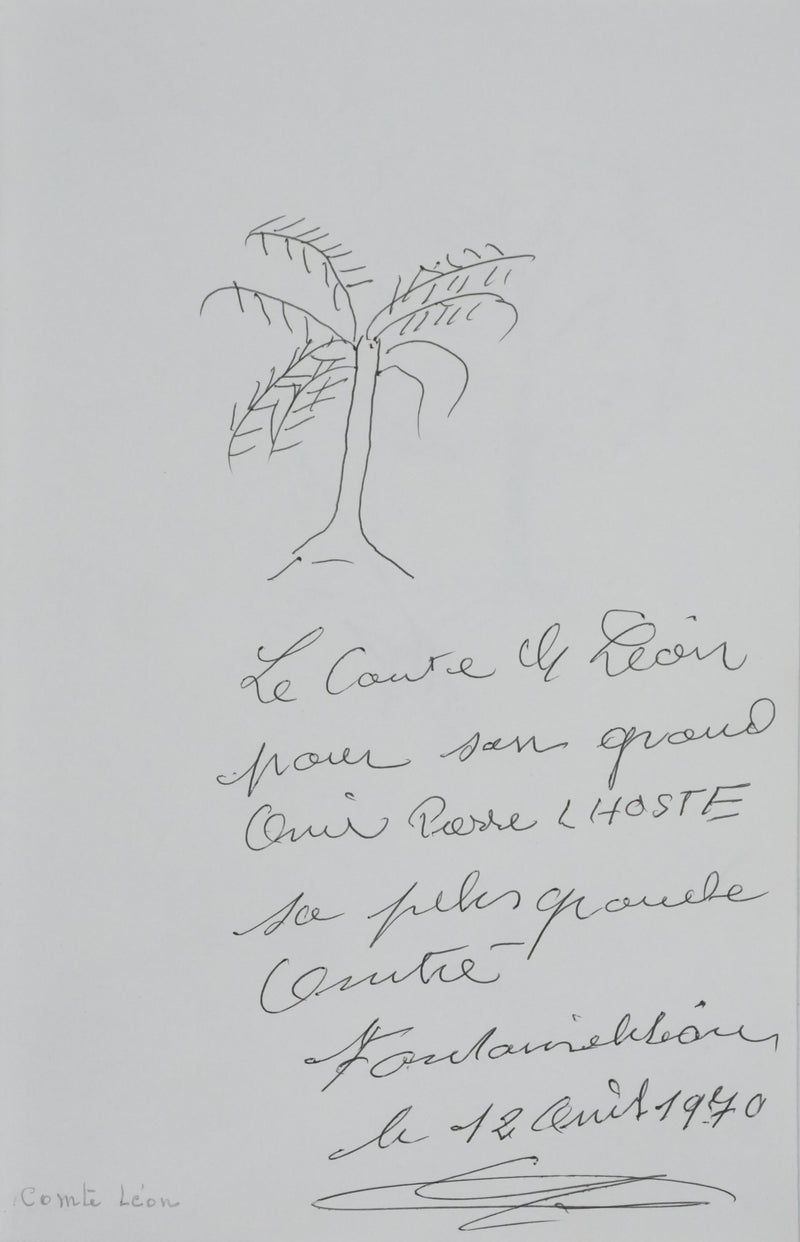 Le Comte Ch Léon
pour son grand
Ami Pierre LHOSTE
sa plus grande
Amitié
Fontainebleau
le 12 Août 1970
Comte Léon